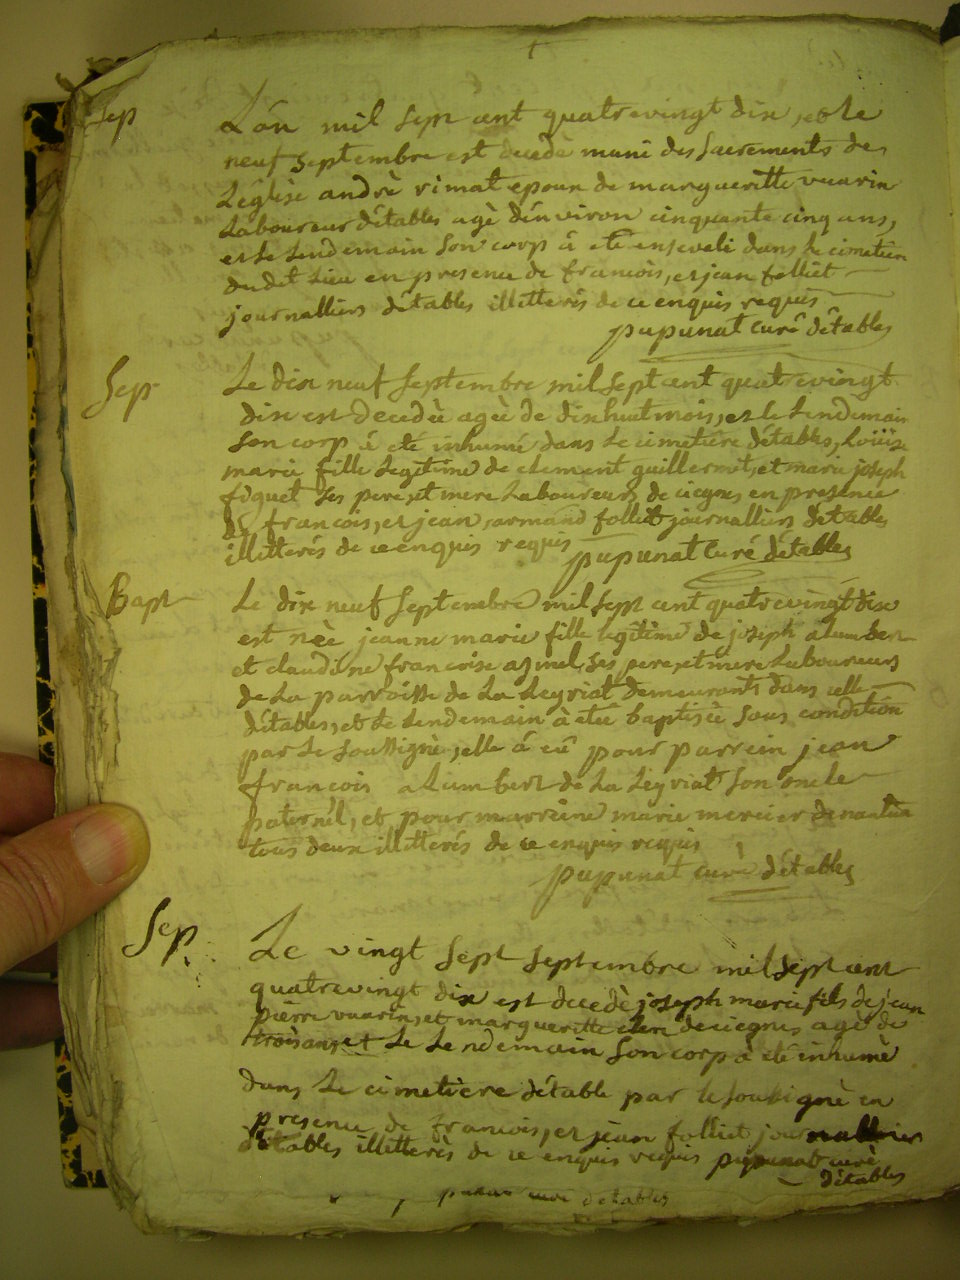 Sep
L'an mil sept cent quatrevingt dix, et le
neuf septembre est decedé muni des sacrements de
L'église andrè rimat epoux de margueritte vuarin
Laboureur d'étables agè d'environ cinquante cinq ans,
et le Lendemain son corp â eté enseveli dans le cimetiere
du dit Lieu en presence de francois, et jean folliet
journalliers d'étables illitterès de ce enquis requis
pupunat curé d'étables
Sep
Le dix neuf septembre mil sept cent quatrevingt
dix est decedèe agèe de dixhuit mois, et le Lendemain
son corp â eté inhumé dans le cimetière d'étables, Loüise
marie fille Legitime de clement guillermet, et marie joseph
figuet ses pere, et mere Laboureurs de ciegnes en presence
de francois, et jean armand folliet journalliers d'étables
illitterés de ce enquis requis pupunat curé d'étables
Bapt
Le dix neuf septembre mil sept cent quatrevingt dix
est nèe jeanne marie fille legitime de joseph alumbert
et claudine francoise azmel, ses pere, et mere Laboureurs
de La parroisse de La Leyriat demeurants dans celle
d'étables, et le Lendemain à etée baptisée sous condition
par Le soussigné, elle â eû pour parrein jean
francois alumbert de La Leyriat son oncle
paternel, et pour marreine marie mercier de nantua
tous deux illitterés de ce enquis requis
pupunat curè d'étables
Sep.
Le vingt sept septembre mil sept cent
quatrevingt dix est decedè joseph marie fils de jean
pierre vuarin, et margueritte de ciegnes agè de
trois ans, et Le Lendemain son corp a eté inhumè
dans Le cimetiere d'étable par le sousigné en
presence de francois, et jean folliet journalliers
d'étables illitterès de ce enquis requis pupunat curè
d'étables
curé d'étables